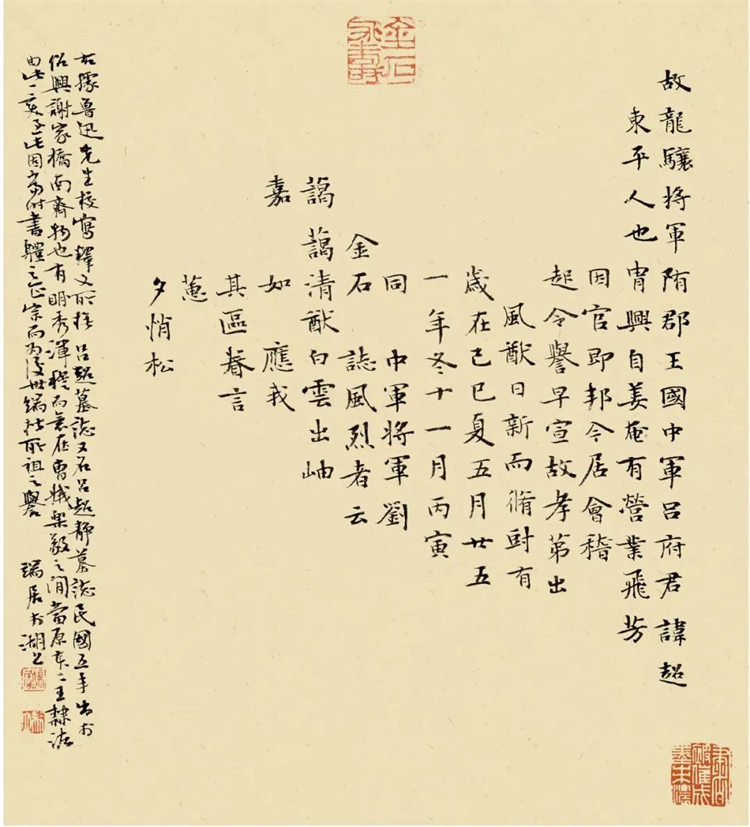 故龍驤將軍隋郡王國中軍呂府君諱超
東平人也胄興自姜奄有營業飛芳
因官即邦今居會稽
起令譽早宣故孝弟出
風猷日新而脩尌有
歲在己巳夏五月廿五
一年冬十一月丙寅
同 中軍將軍劉
金石 誌風烈者云
藹藹清猷白雲出岫
嘉 如 應我
其區眷言
蒽
夕悄松
右據魯迅先生校寫釋文所抚呂超墓誌又名呂超靜墓誌民國五年出於
紹興謝家橋南齊物也有明秀渾穆而意在曹娥樂毅之間當原本二王隸法
由此二變至此因尚書體之正宗而為後世端楷所祖之譽 瑞居於湖上
金石